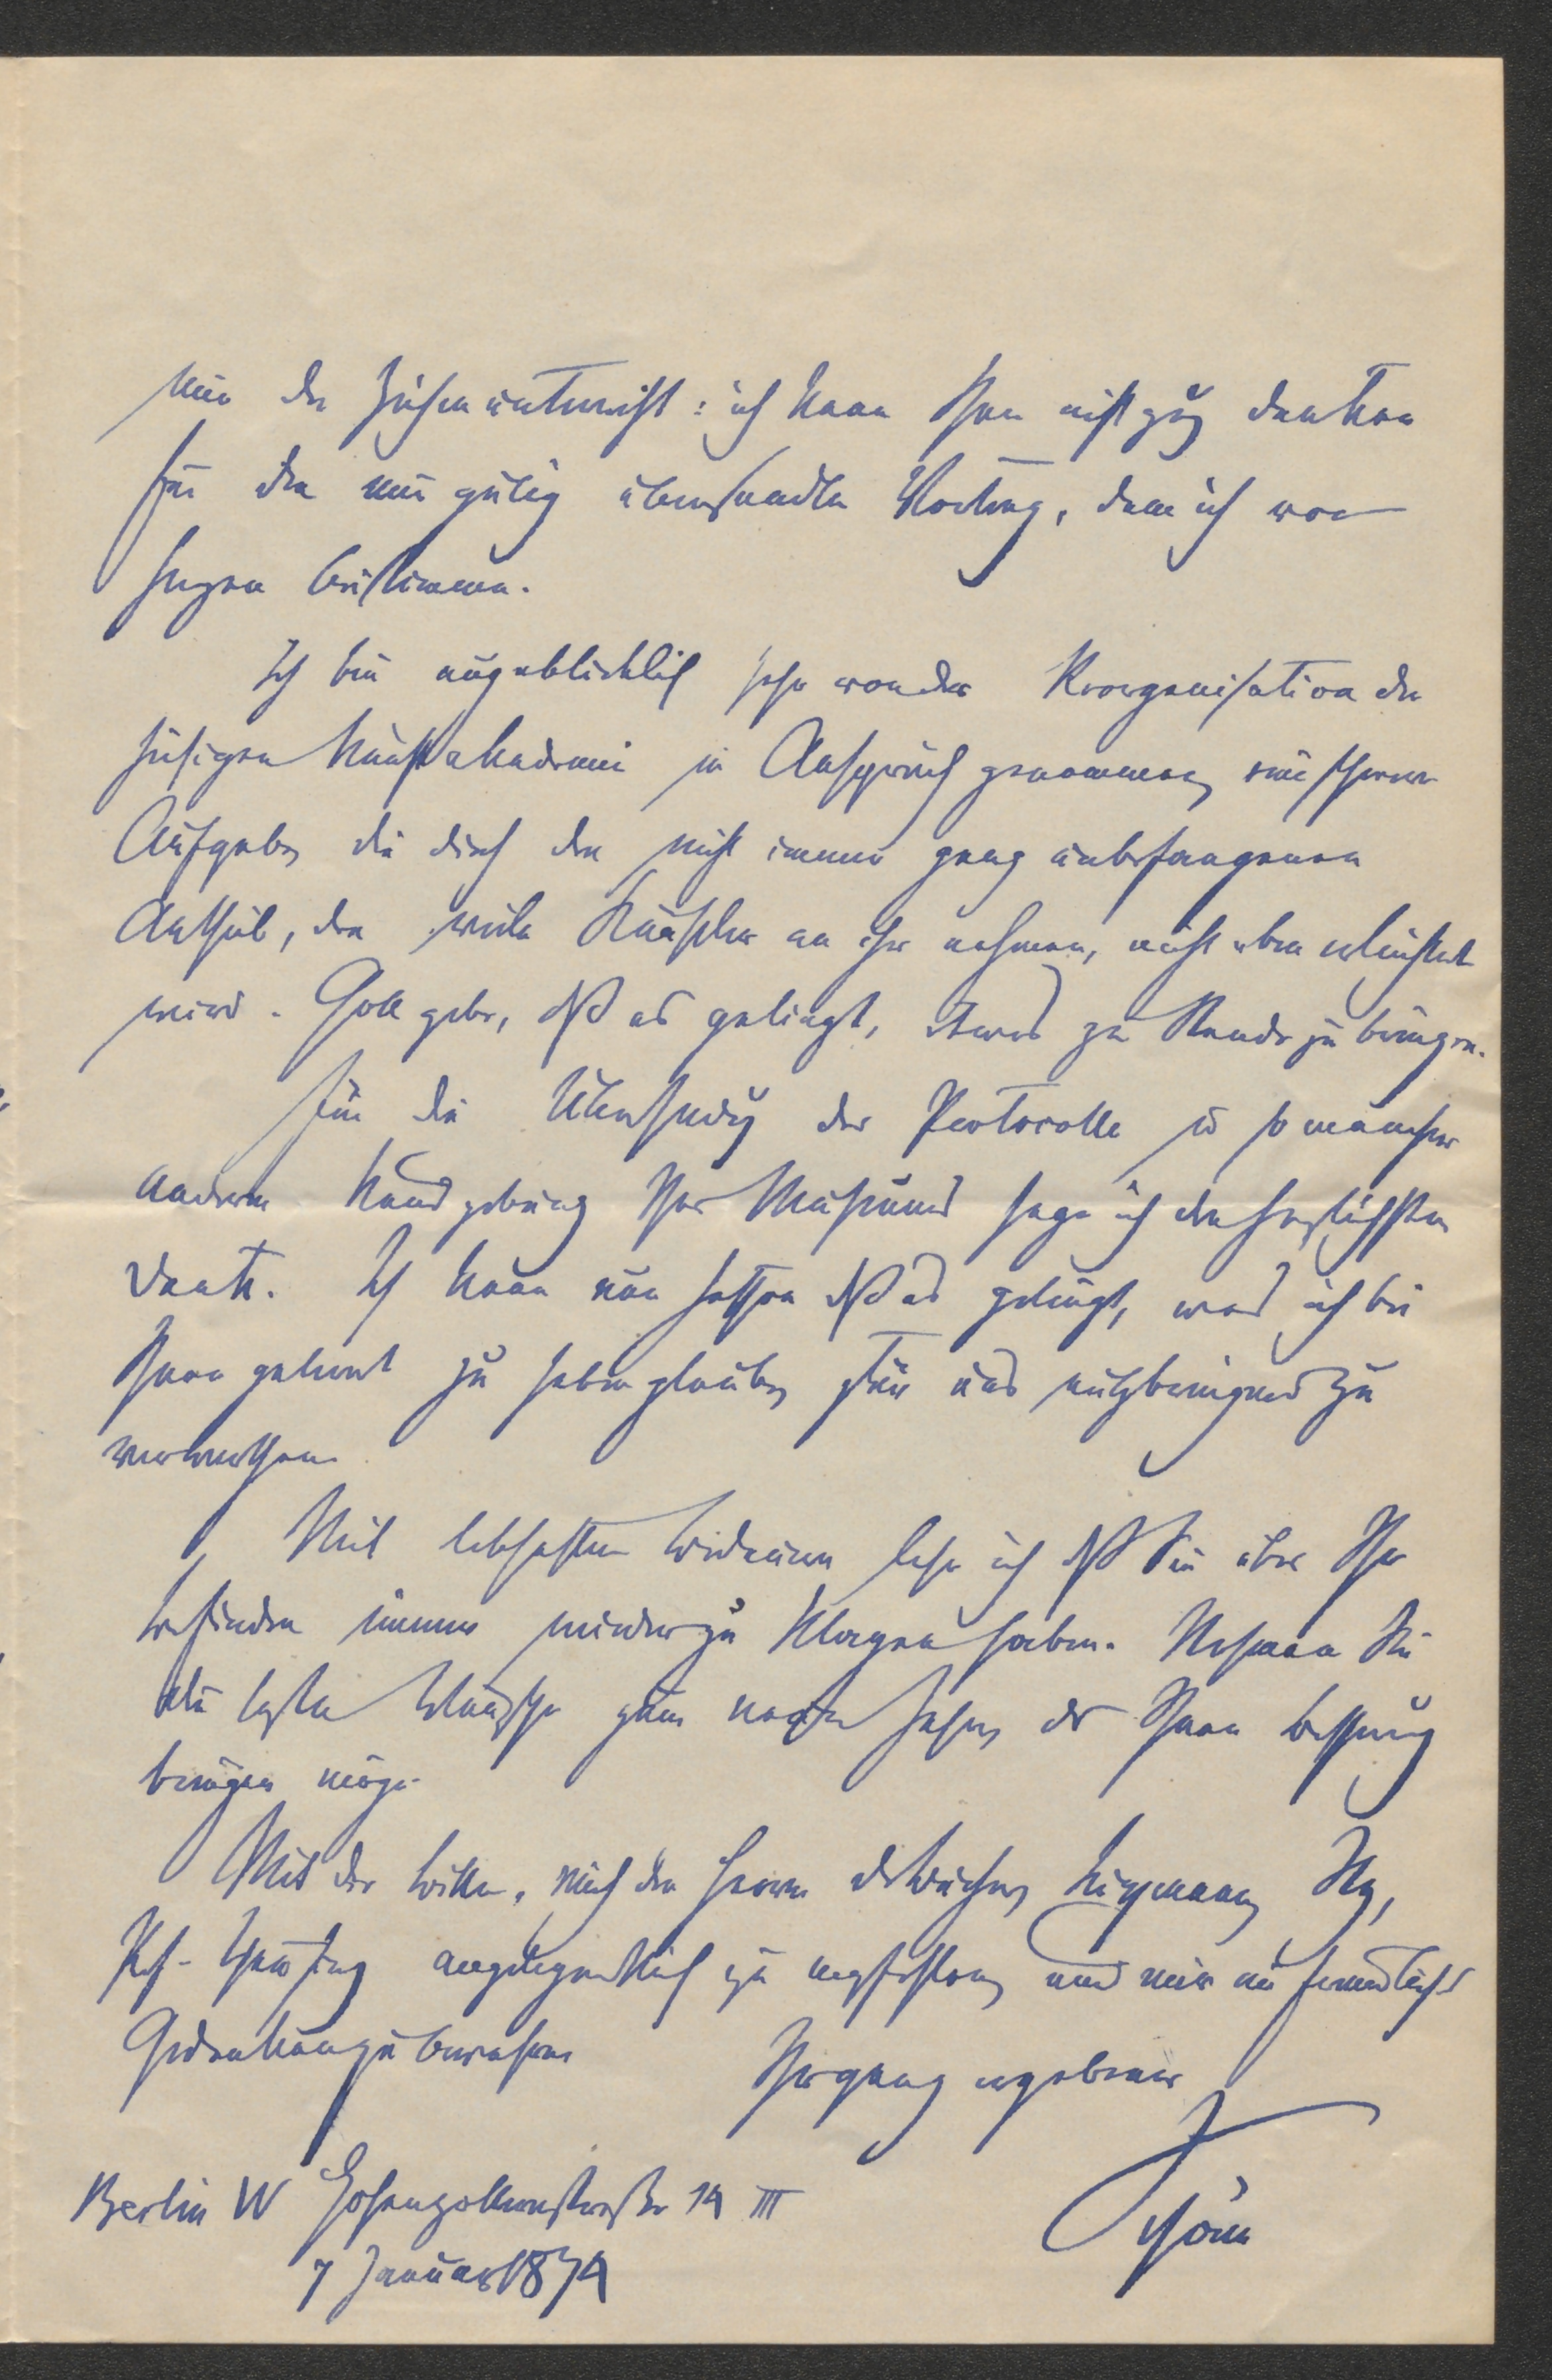 nur der Zeichenunterricht: ich kann Ihnen nicht gnug danken
für den mir gütig übersandten Vortrag, dem ich von
Herzen beistimme.
Ich bin augenblicklich sehr von der Reorganisation der
hiesigen Kunstakademie in Anspruch genommen, eine schwere
Aufgabe, die durch den nicht immer ganz unbefangenen
Antheil, den viele Künstler an ihr nehmen, nicht eben erleichtert
wird. Gott gebe, dß es gelingt, etwas zu Stande zu bringen.
Für die Übersendung der Protocolle u so mancher
anderen Kundgebung Ihres Museums sage ich den herzlichsten
Dank. Ich kann nur hoffen dß es gelingt, was ich bei
Ihnen gelernt zu haben glaube, für uns nutzbringend zu
verwerthen.
Mit lebhaftem Bedauern lese ich dß Sie über Ihr
Befinden immer wieder zu klagen haben. Nehmen Sie
die besten Wünsche zum neuen Jahre, das Ihnen Besserung
bringen möge.
Mit der Bitte, mich den Herren Lippmann,
angelegentlich zu empfehlen, und mir ein freundliches
Gedenken zu bewahren
Ihr ganz ergebener
Schöne
Berlin W Hohenzollernstraße 14 III
7 Januar 1874